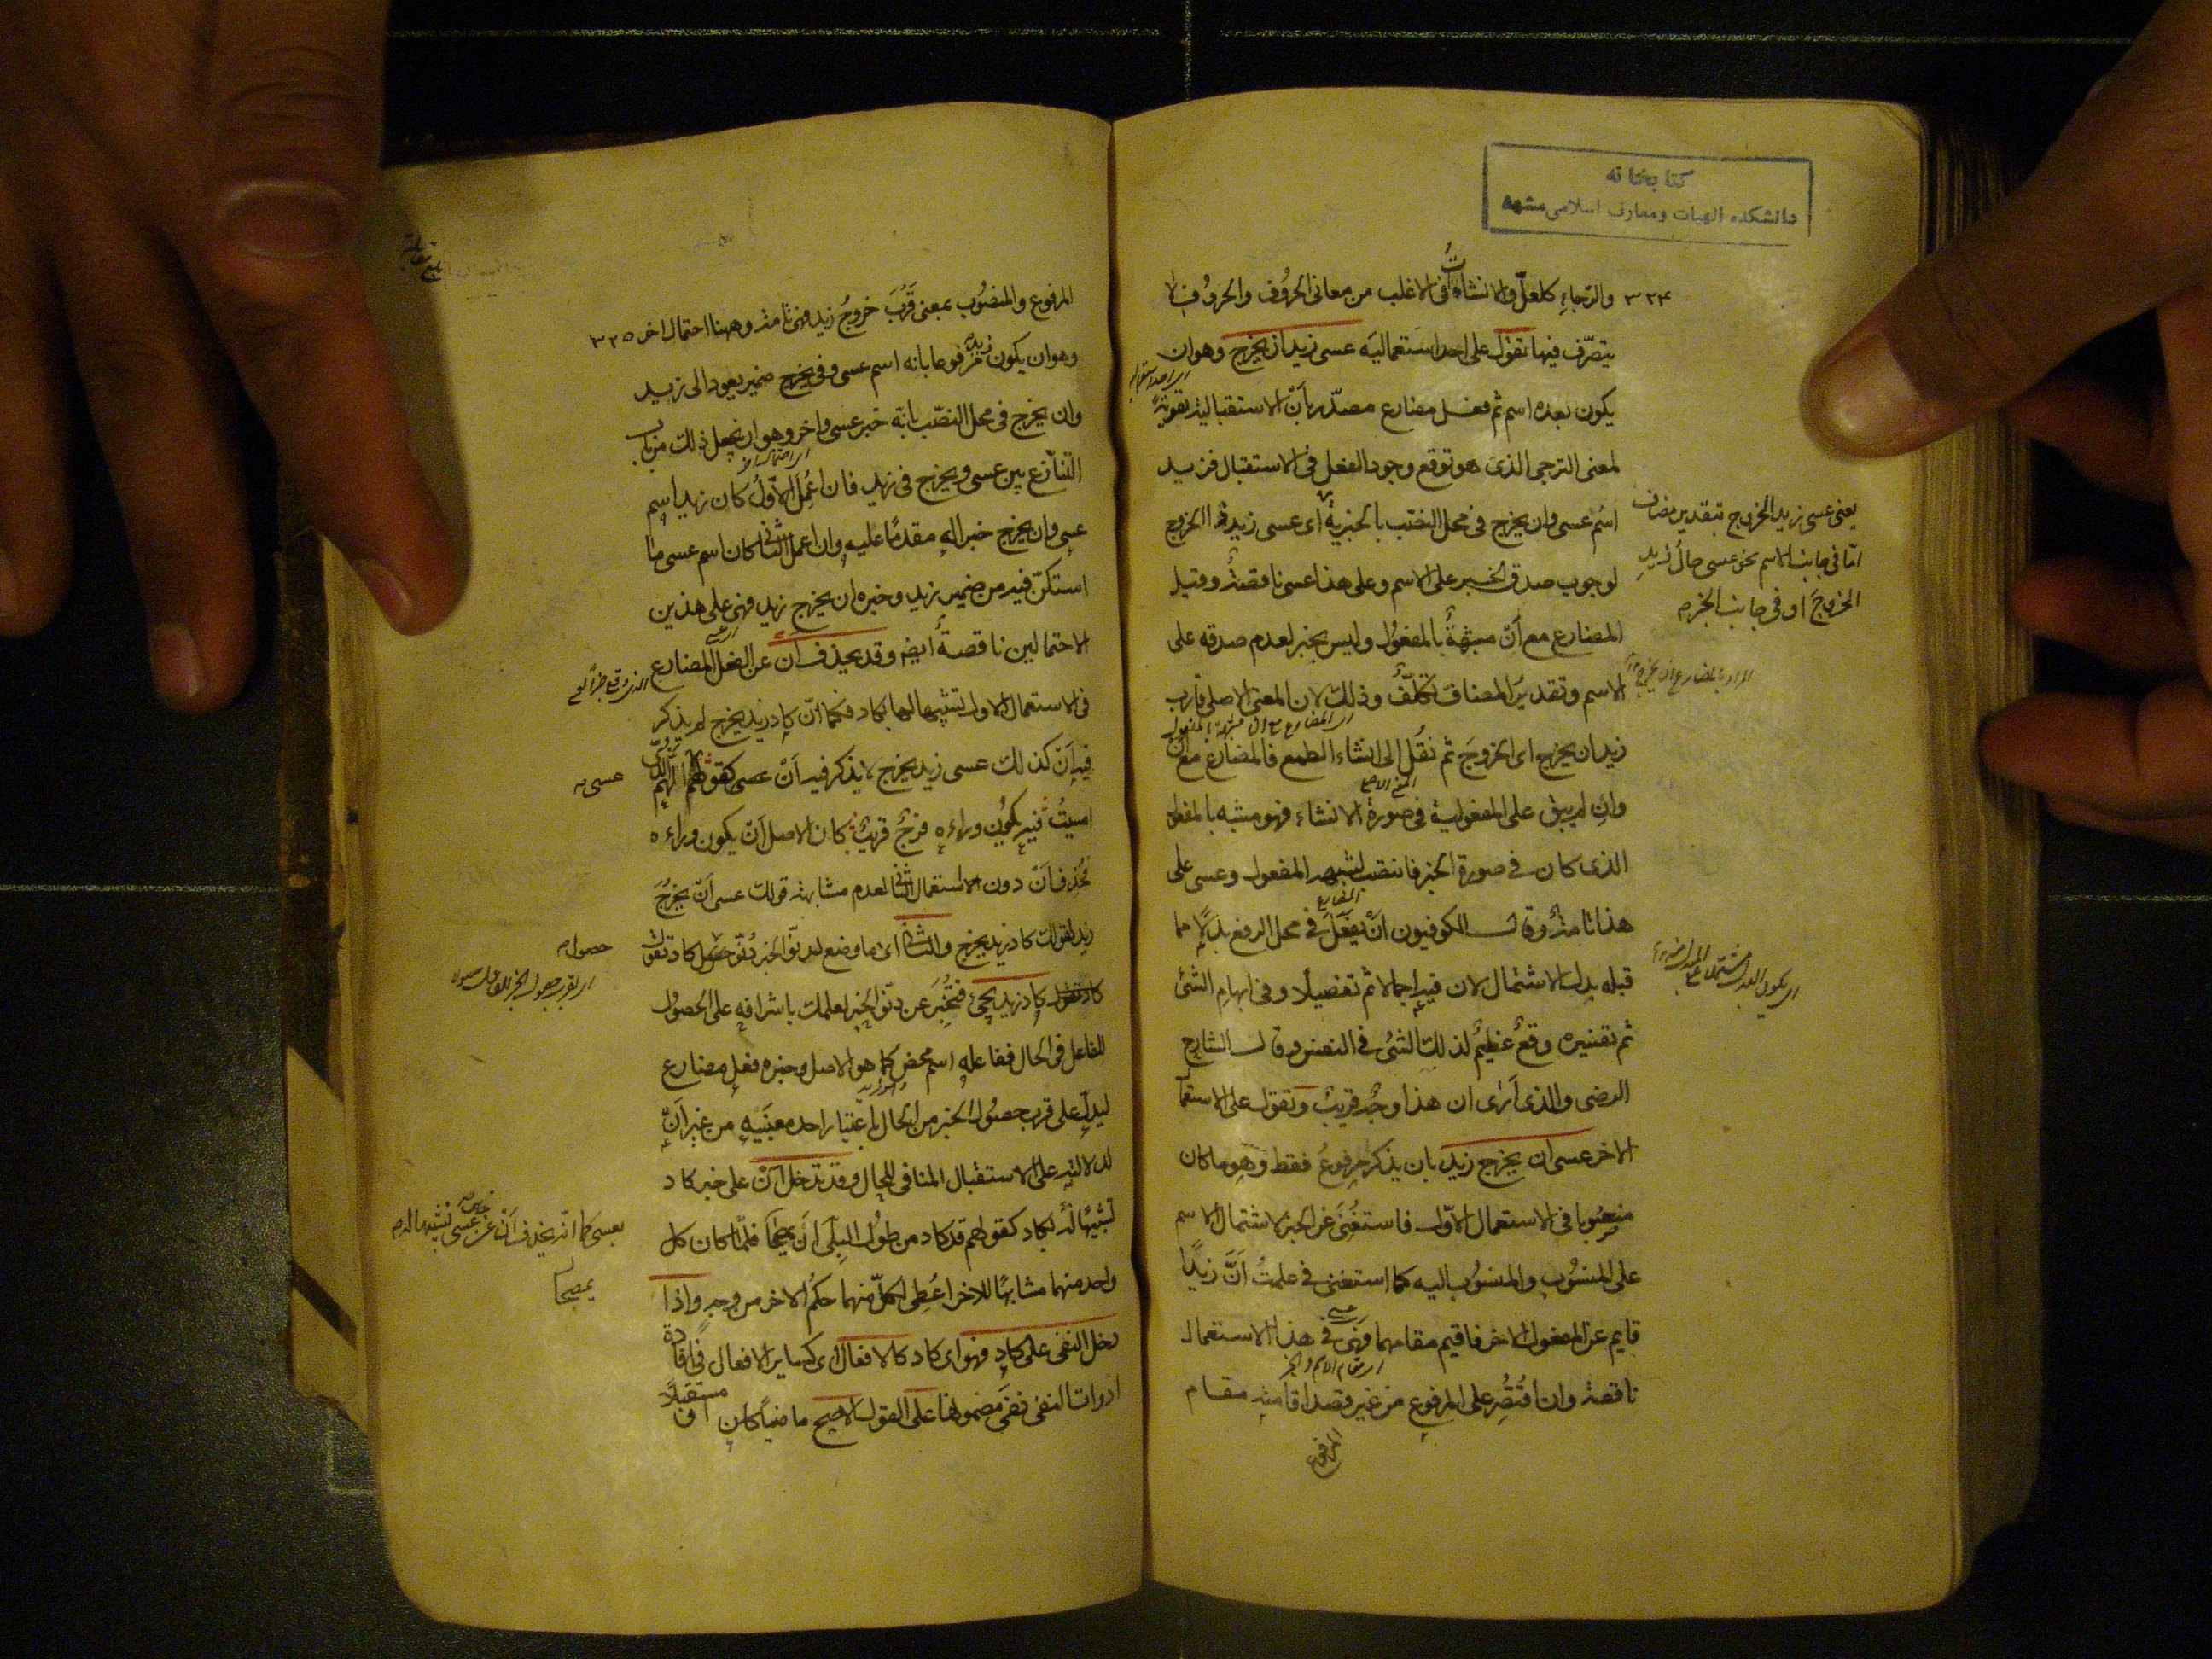 كتابخانه
دانشكده الهيات ومعارف اسلامى مشهد
٣٢٤ والترجاء كلعل والانشاآت فى الاغلب من معانى الحروف والحروف لا
يتصرف فيها تقول على احد استعماليه عسى زيد ان يخرج وهو ان
يكون بعده اسم ثم فعل مضارع مصدّر بأن الاستقبالية تقوية
لمعنى الترجى الذى هو توقع وجود الفعل فى الاستقبال فزيد
اسم عسى وان يخرج فى محل النصب بالخبرية اى عسى زيد الخروج
لوجوب صدق الخبر على الاسم وعلى هذا عسى ناقصة وقيل
المضارع مع أن مشبهة بالمفعول وليس بخبر لعدم صدقه على
الاسم وتقدير المضاف تكلّف وذلك لان المعنى الاصلى قارب
زيد ان يخرج اى الخروج ثم نقل الى انشاء الطمع فالمضارع مع أن
وان لم يبق على المفعولية فى صورة الانشاء فهو مشبه بالمفعول
الذى كان فى صورة الخبر فانتصب لشبهه المفعول وعسى على
هذا تامة وقال الكوفيون أن يفعل فى محل الرفع بدلا مما
قبله بدل الاشتمال لان فيه اجمالا ثم تفصيلا وفى ابهام الشئ
ثم تفسيره وقع عظيم لذلك الشئ فى النفس وقال الشارح
الرضى والذى أرى ان هذا وجه قريب وتقول على الاستعمال
الاخر عسى ان يخرج زيد بان يذكر مرفوع فقط وهو ما كان
منصوبا فى الاستعمال الاول فاستغنى عن الخبر لاشتمال الاسم
على المنسوب والمنسوب اليه كما استغنى فى علمت أنّ زيدا
قايم عن المفعول الاخر فاقيم مقامهما فهى فى هذا الاستعمال
ناقصة وان اقتصر على المرفوع من غير قصد اقامته مقام
المرفوع
يعنى عسى زيد الخروج بتقدير مضاف
امّا فى جانب الاسم نحو عسى حال زيد
الخروج او فى جانب الخبر
المرفوع والمنصوب بمعنى قرب خروج زيد فهى تامة وههنا احتمال اخر ٣٢٥
وهو ان يكون زيد مرفوعا بانه اسم عسى وفى يخرج ضمير يعود الى زيد
وان يخرج فى محل النصب بانه خبر عسى واخر وهو ان يجعل ذلك من باب
التنازع بين عسى ويخرج فى زيد فان اعمل الاول كان زيد اسم
عسى وان يخرج خبرا له مقدما عليه وان اعمل الثانى كان اسم عسى ما
استكنّ فيه من ضمير زيد وخبره ان يخرج زيد فهى على هذين
الاحتمالين ناقصة أيضا وقد يحذف أن عن الفعل المضارع
فى الاستعمال الاول تشبيها لها بكاد فكما انّ كاد زيد يخرج لم يذكر
فيه أن كذلك عسى زيد يخرج لا يذكر فيه أن عسى كقوله الهمّ الذى
امسيت فيه يكون وراءه فرج قريب كان الاصل أن يكون وراءه
فحذف أن دون الاستعمال الثانى لعدم مشابهة قولك عسى أن يخرج
زيد لقولك كاد زيد يخرج والثانى اى ما وضع لدنو الخبر دنو حصول كاد تقول
كاد زيد يجئ فتخبر عن دنو الخبر لعلمك باشرافه على الحصول
للفاعل فى الحال ففاعله اسم محض كما هو الاصل وخبره فعل مضارع
ليدل على قرب حصول الخبر من الحال باعتبار احد معنييه من غير أن
لدلالته على الاستقبال المنافى للحال وقد تدخل أن على خبر كاد
تشبيها له بكاد كقولهم قد كاد من طول البلى أن يمصحا فلما كان كل
واحد منهما مشابها للاخر اعطى لكل منهما حكم الاخر من وجه واذا
دخل النفى على كاد فهو اى كاد كالافعال اى كساير الافعال فى افادة
ادوات النفى نفى مضمونها على القول الاصح ماضيا كان او مستقبلا
عسى
حصوله
بعسى كما انه يحذف أن عن خبر عسى تشبيها له
يمصحا